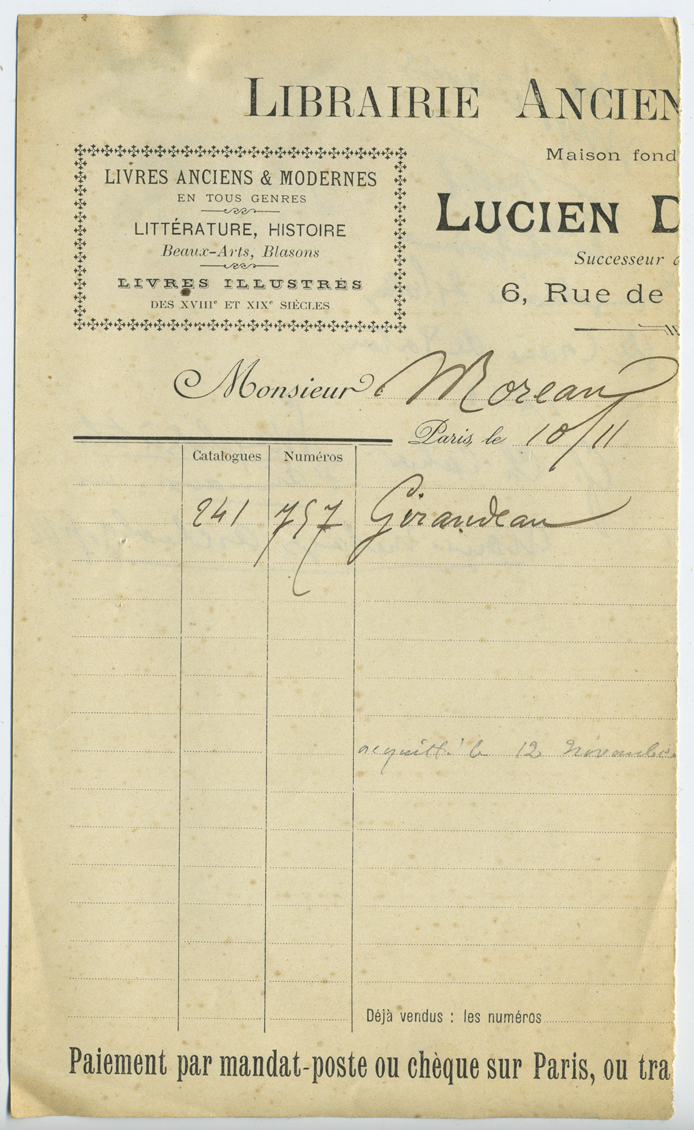 LIBRAIRIE ANCIEN
LIVRES ANCIENS & MODERNES
EN TOUS GENRES
LITTÉRATURE, HISTOIRE
Beaux-Arts, Blasons
LIVRES ILLUSTRÉS
DES XVIIIe ET XIXe SIÈCLES
Maison fond
LUCIEN D
Successeur
6, Rue de
Monsieur Moreau
Paris, le 10/11
Catalogues Numéros
241 757 Girandeau
acquitté le 12 novembre
Déjà vendus : les numéros
Paiement par mandat-poste ou chèque sur Paris, ou tra